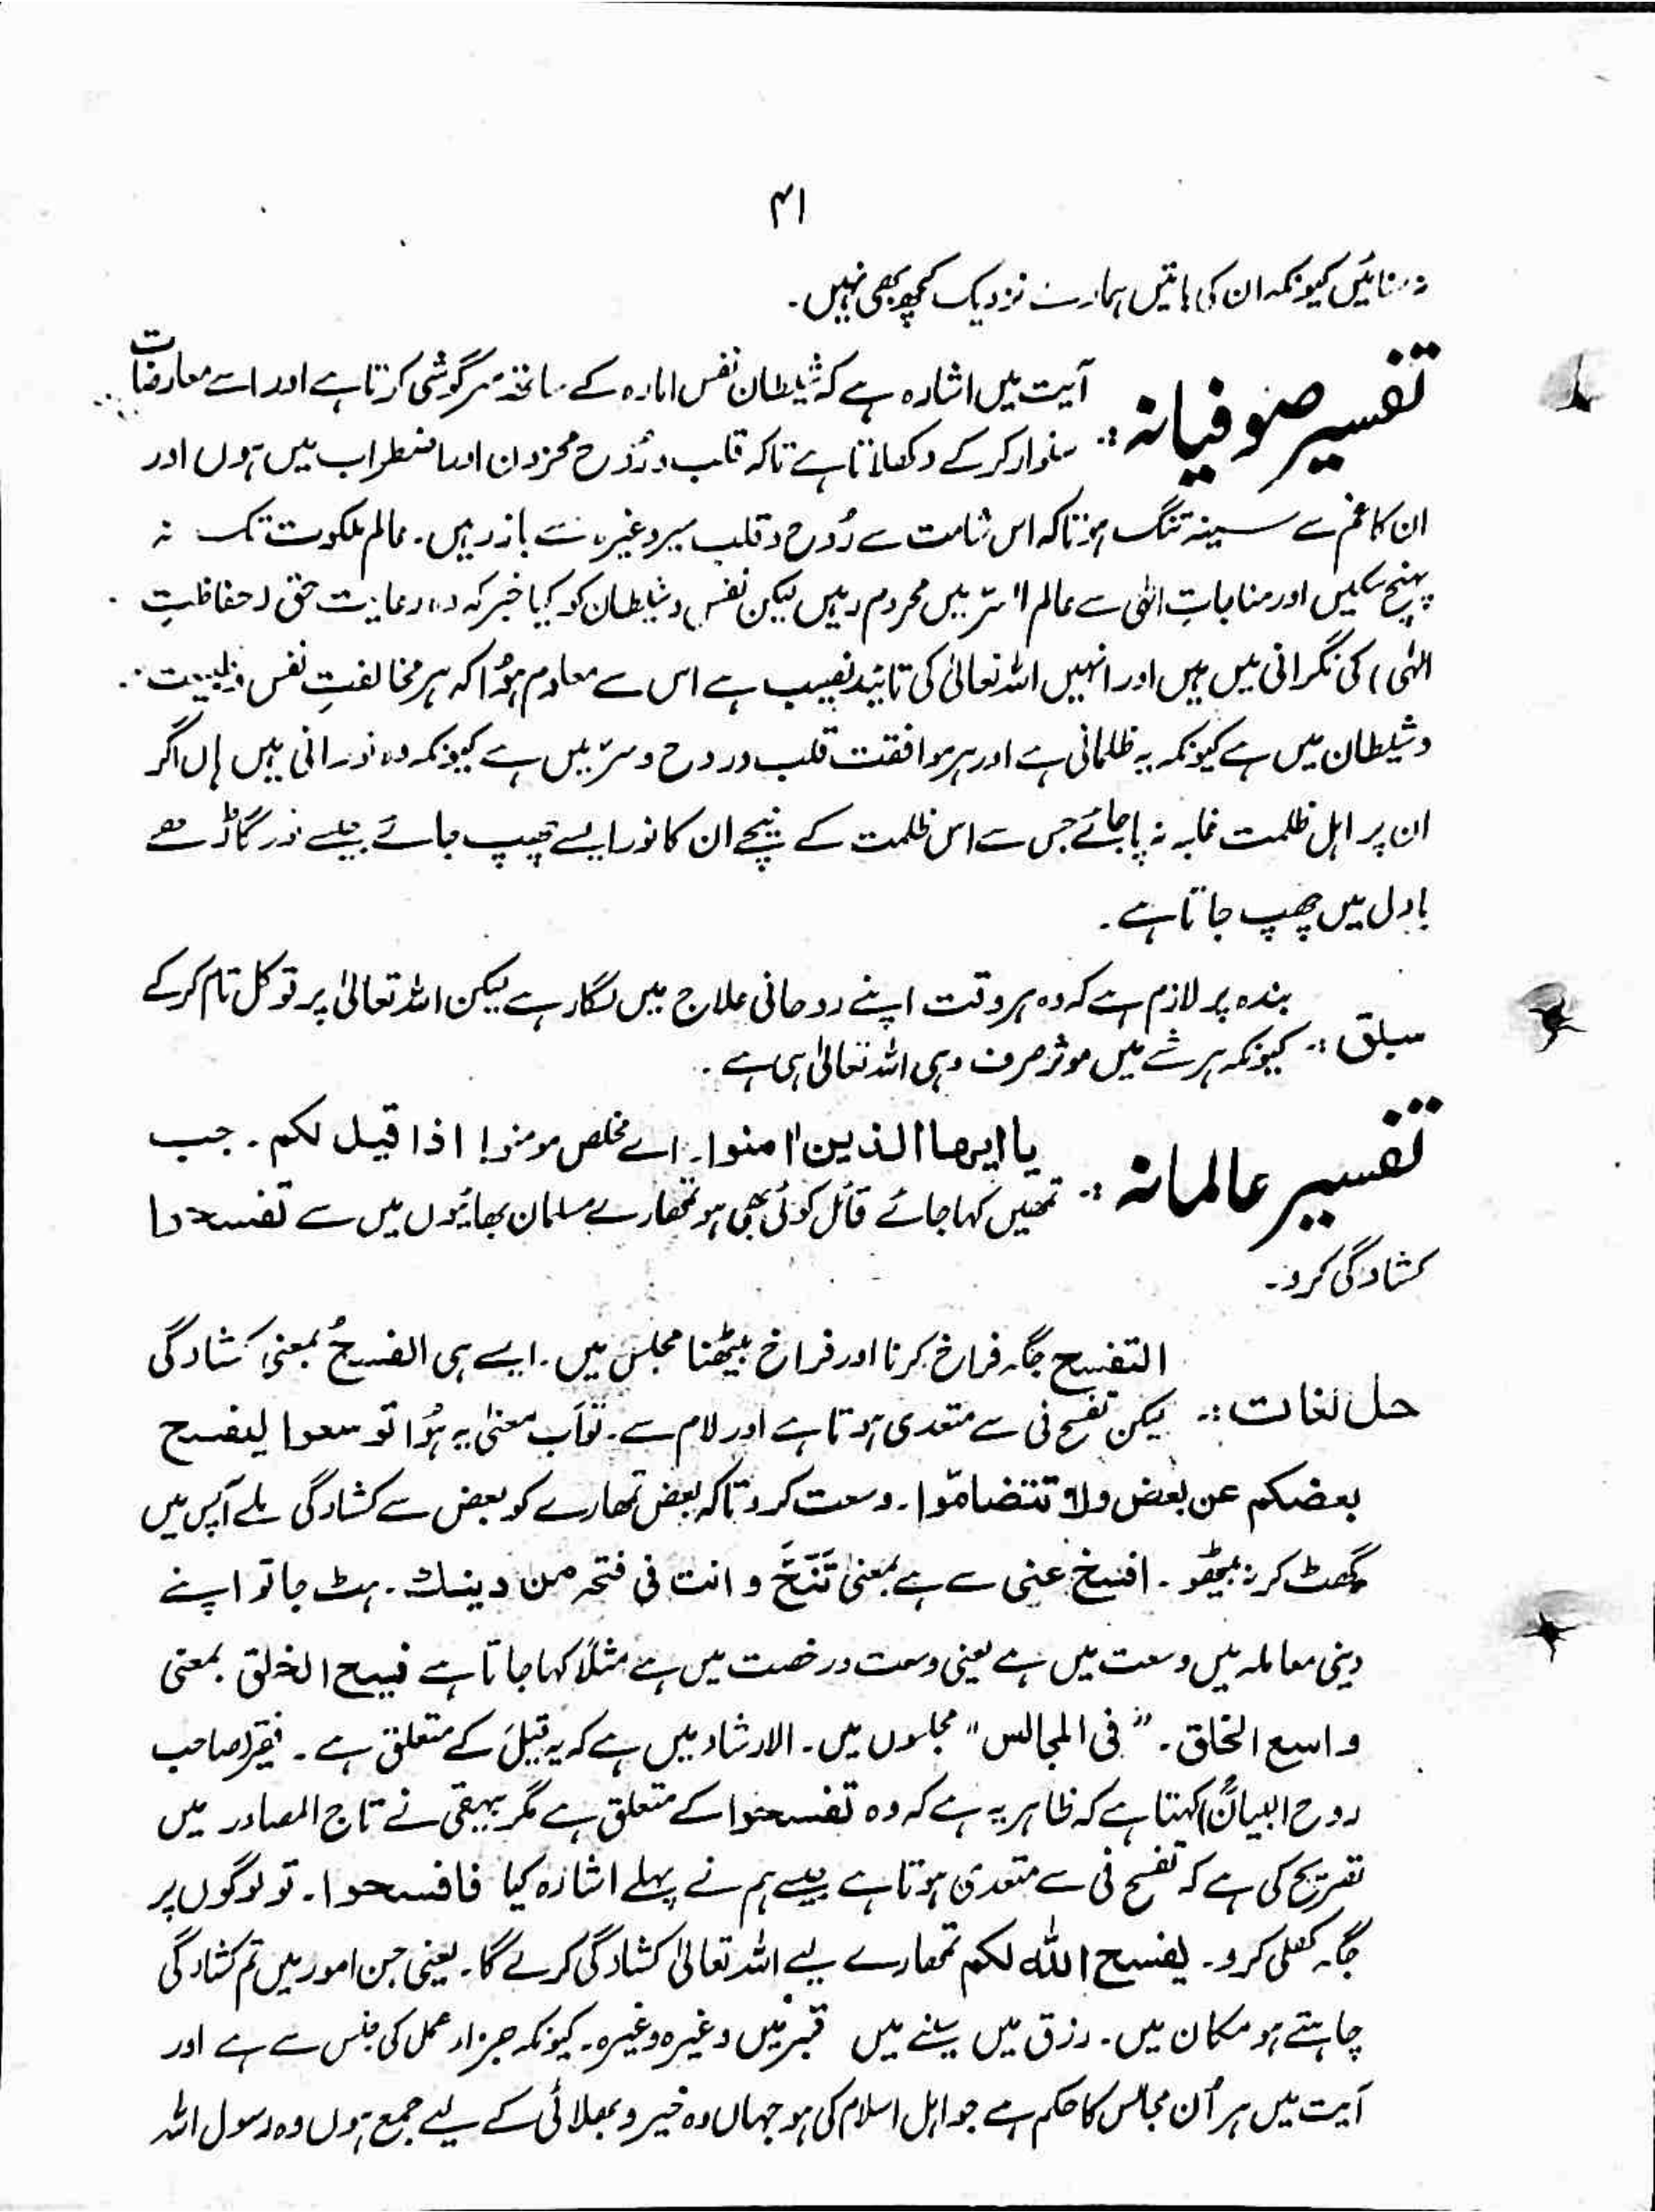 ۴۱
نہ سنائیں کیونکہ ان کی باتیں ہمارے نزدیک کچھ بھی نہیں۔
تفسیر صوفیانہ :۔ آیت میں اشارہ ہے کہ شیطان نفس امارہ کے ساتھ سرگوشی کرتا ہے اور اسے معارضات
سنوار کر کے دکھلاتا ہے تاکہ قلب و رُوح محزون اور اضطراب میں ہوں اور
ان کا غم سے سینہ تنگ ہو تاکہ اس شامت سے رُوح و قلب سیر وغیرہ سے باز رہیں۔ عالم ملکوت تک نہ
پہنچ سکیں اور مناجاتِ الٰہی سے عالم السّر میں محروم رہیں لیکن نفس و شیطان کو کیا خبر کہ وہ رعایت حق و حفاظتِ
الٰہی) کی نگرانی میں ہیں اور انہیں اللہ تعالیٰ کی تائید نصیب ہے اس سے معلوم ہُوا کہ ہر مخالفتِ نفس و طبیعت
و شیطان میں ہے کیونکہ یہ ظلمانی ہے اور ہر موافقت قلب و روح و سرّ میں ہے کیونکہ وہ نورانی ہیں ہاں اگر
ان پر اہل ظلمت غلبہ نہ پا جائے جس سے اس ظلمت کے نیچے ان کا نور ایسے چھپ جائے جیسے نور گاڑھے
بادل میں چھپ جاتا ہے۔
سبق :۔ بندہ پر لازم ہے کہ وہ ہر وقت اپنے روحانی علاج میں لگا رہے لیکن اللہ تعالیٰ پر توکل تام کرکے
کیونکہ ہر شے میں موثر صرف وہی اللہ تعالیٰ ہی ہے۔
تفسیر عالمانہ :۔ یا ایھا الذین اٰمنوا۔ اے مخلص مومنو! اذا قیل لکم۔ جب
تمھیں کہا جائے قائل کوئی بھی ہو تمھارے مسلمان بھائیوں میں سے تفسحوا
کشادگی کرو۔
حل لغات :۔ التفسح جگہ فراخ کرنا اور فراخ بیٹھنا مجلس میں۔ ایسے ہی الفسحُ بمعنیٰ کشادگی
لیکن تفسح فی سے متعدی ہوتا ہے اور لام سے۔ تو اَب معنیٰ یہ ہُوا توسعوا لیفسح
بعضکم عن بعض ولا تتضامّوا۔ وسعت کرو تاکہ بعض تمھارے کو بعض سے کشادگی ملے آپس میں
گھٹ کر نہ بیٹھو۔ افسح عنی سے ہے بمعنیٰ تَنَحَّ و انت فی فتحۃ من دینک۔ ہٹ جا تو اپنے
دینی معاملہ میں وسعت میں ہے یعنی وسعت و رخصت میں ہے مثلاً کہا جاتا ہے فسیح الخلق بمعنی
واسع الخلق۔ "فی المجالس" مجلسوں میں۔ الارشاد میں ہے کہ یہ قیلَ کے متعلق ہے۔ فقیر (صاحب
روح البیانؒ) کہتا ہے کہ ظاہر یہ ہے کہ وہ تفسحوا کے متعلق ہے مگر بیہقی نے تاج المصادر میں
تصریح کی ہے کہ تفسح فی سے متعدی ہوتا ہے جیسے ہم نے پہلے اشارہ کیا فافسحوا۔ تو لوگوں پر
جگہ کھلی کرو۔ یفسح اللہ لکم تمھارے لیے اللہ تعالیٰ کشادگی کرے گا۔ یعنی جن امور میں تم کشادگی
چاہتے ہو مکان میں۔ رزق میں سینے میں قبر میں وغیرہ وغیرہ۔ کیونکہ جزاء عمل کی جنس سے ہے اور
آیت میں ہر اُن مجالس کا حکم ہے جو اہل اسلام کی ہو جہاں وہ خیر و بھلائی کے لیے جمع ہوں وہ رسول اللہ